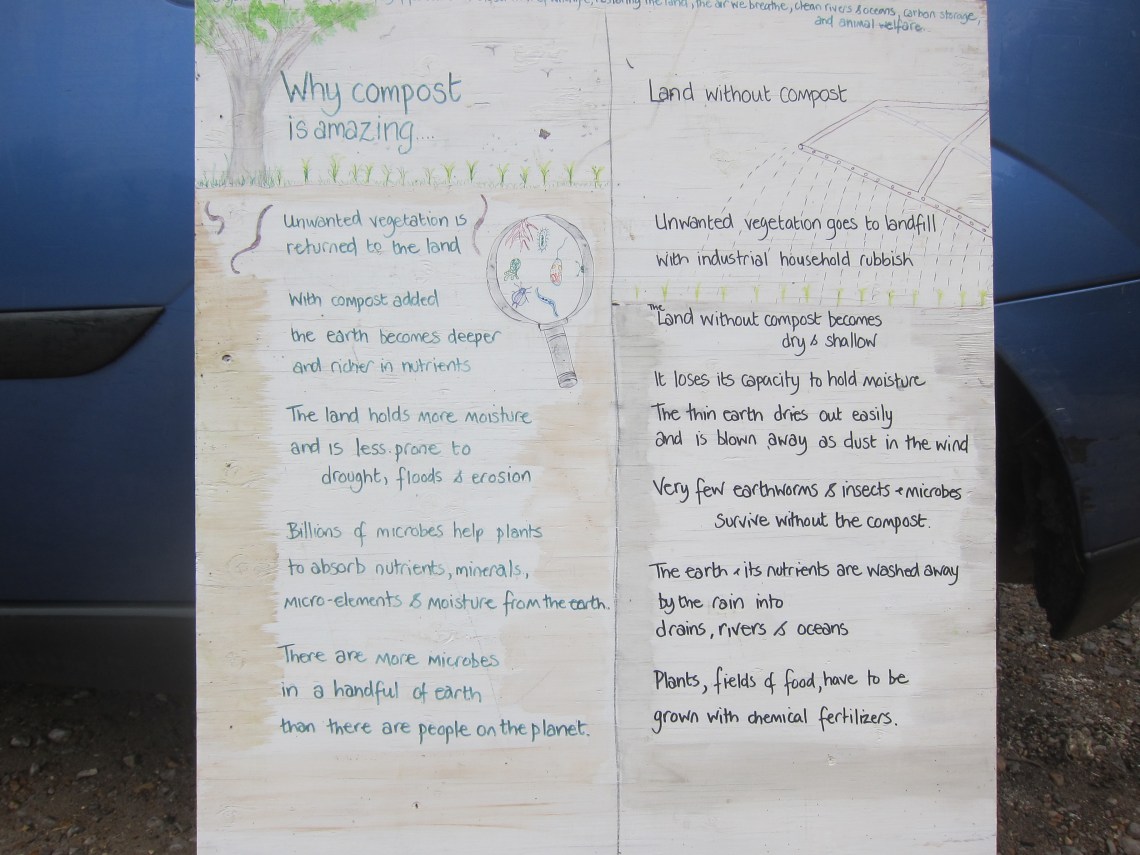 restoring the land, the air we breathe, clean rivers & oceans, carbon storage,
and animal welfare.
Why compost
is amazing....
Unwanted vegetation is
returned to the land
With compost added
the earth becomes deeper
and richer in nutrients
The land holds more moisture
and is less prone to
drought, floods & erosion
Billions of microbes help plants
to absorb nutrients, minerals,
micro-elements & moisture from the earth.
There are more microbes
in a handful of earth
than there are people on the planet.
Land without compost
Unwanted vegetation goes to landfill
with industrial household rubbish
The Land without compost becomes
dry & shallow
It loses its capacity to hold moisture
The thin earth dries out easily
and is blown away as dust in the wind
Very few earthworms & insects + microbes
survive without the compost.
The earth + its nutrients are washed away
by the rain into
drains, rivers & oceans
Plants, fields of food, have to be
grown with chemical fertilizers.